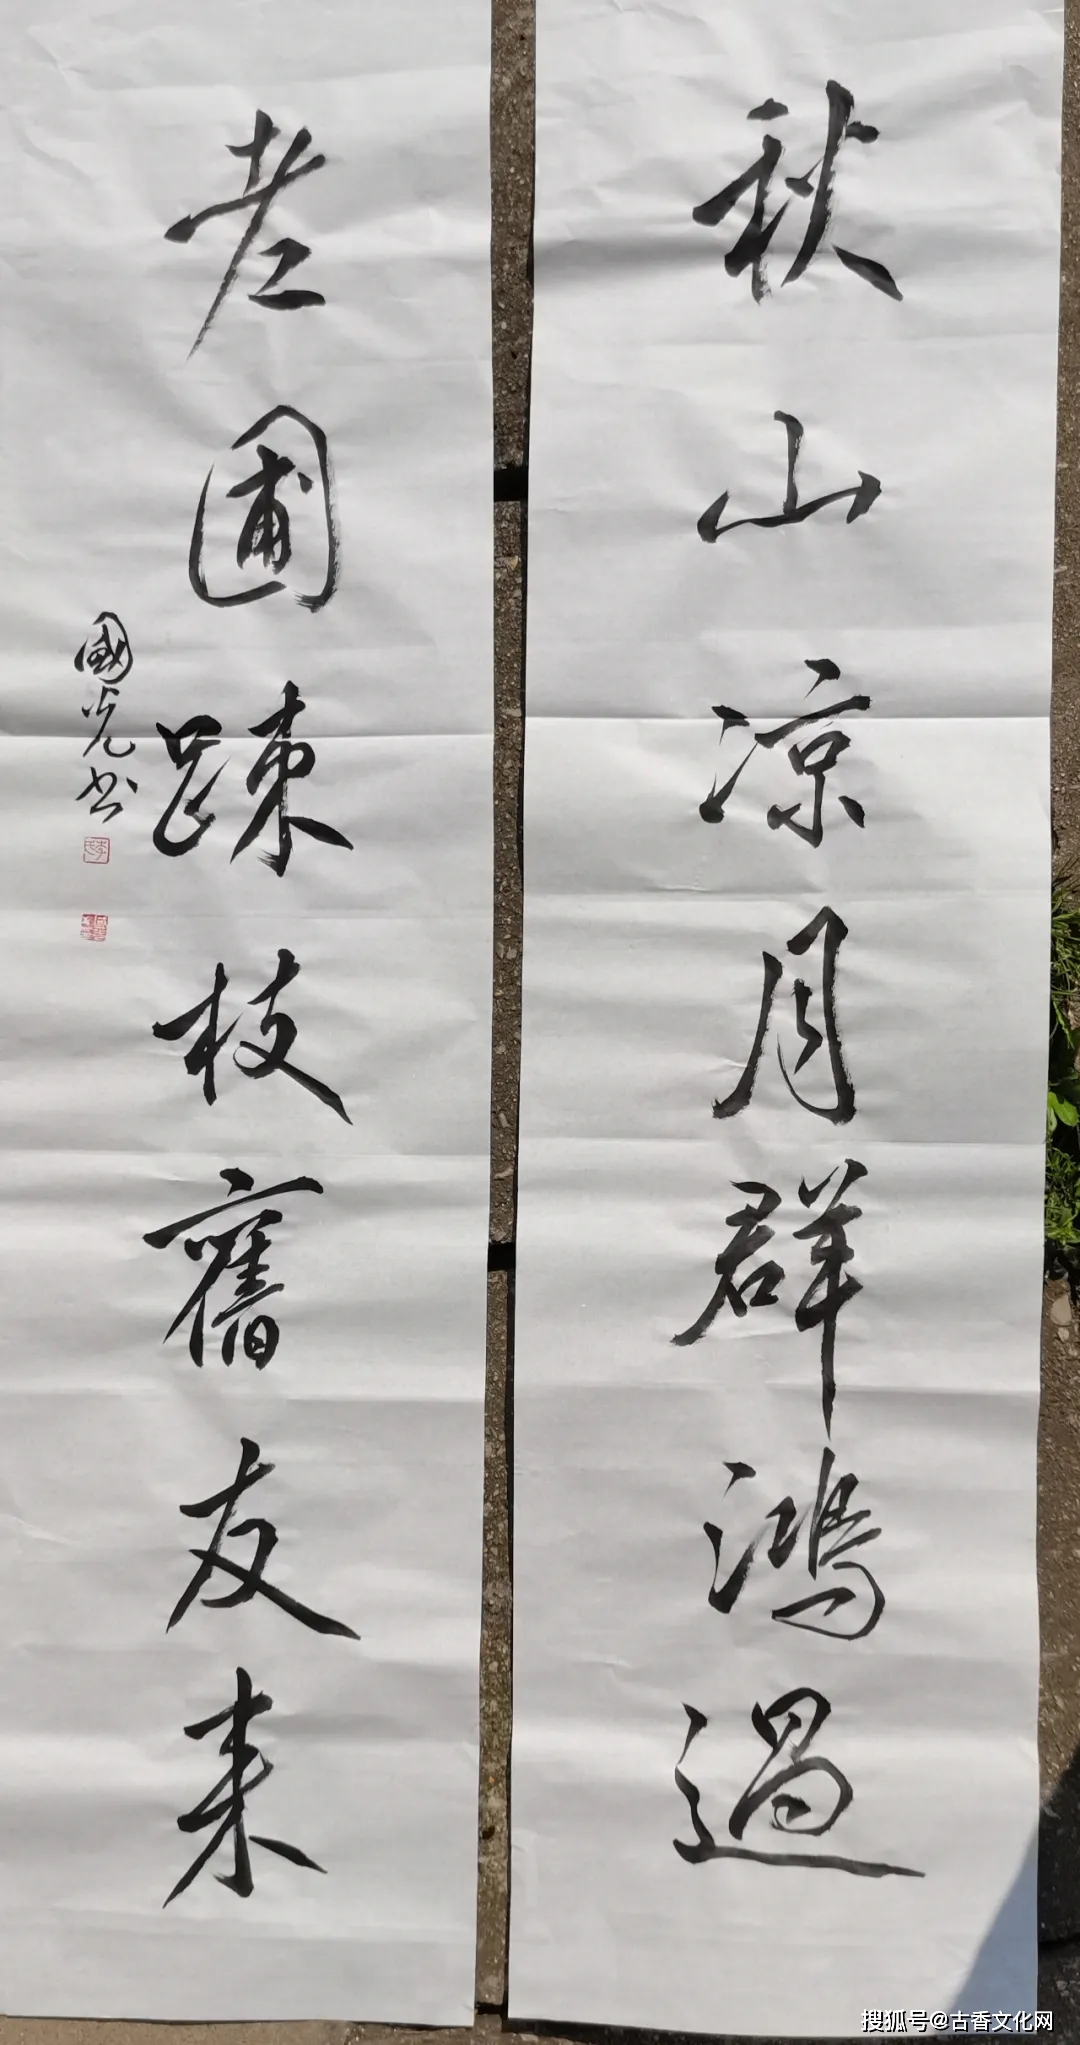 秋山凉月群鴻過
老圃踈枝舊友来
國光书
搜狐号@古香文化网